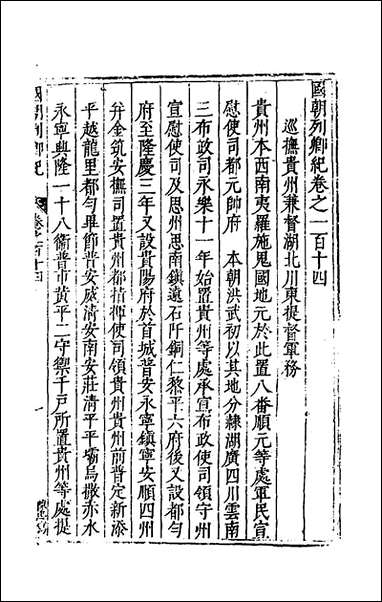 國朝列卿紀卷之一百十四
巡撫貴州兼督湖北川東提督軍務
貴州本西南夷羅施鬼國地元於此置八番順元等處軍民宣
慰使司都元帥府 本朝洪武初以其地分隸湖廣四川雲南
三布政司永樂十一年始置貴州等處承宣布政使司領守州
宣慰使司及思州思南鎮遠石阡銅仁黎平六府後又設都勻
府至隆慶三年又設貴陽府於首城普安永寧鎮寧安順四州
幷金筑安撫司置貴州都指揮使司領貴州貴州前普定新添
平越龍里都勻畢節普安威清安南安莊清平平壩烏撒赤水
永寧興隆一十八衛普市黃平二守禦千戶所置貴州等處提
國朝列卿紀
卷之一百十四
一